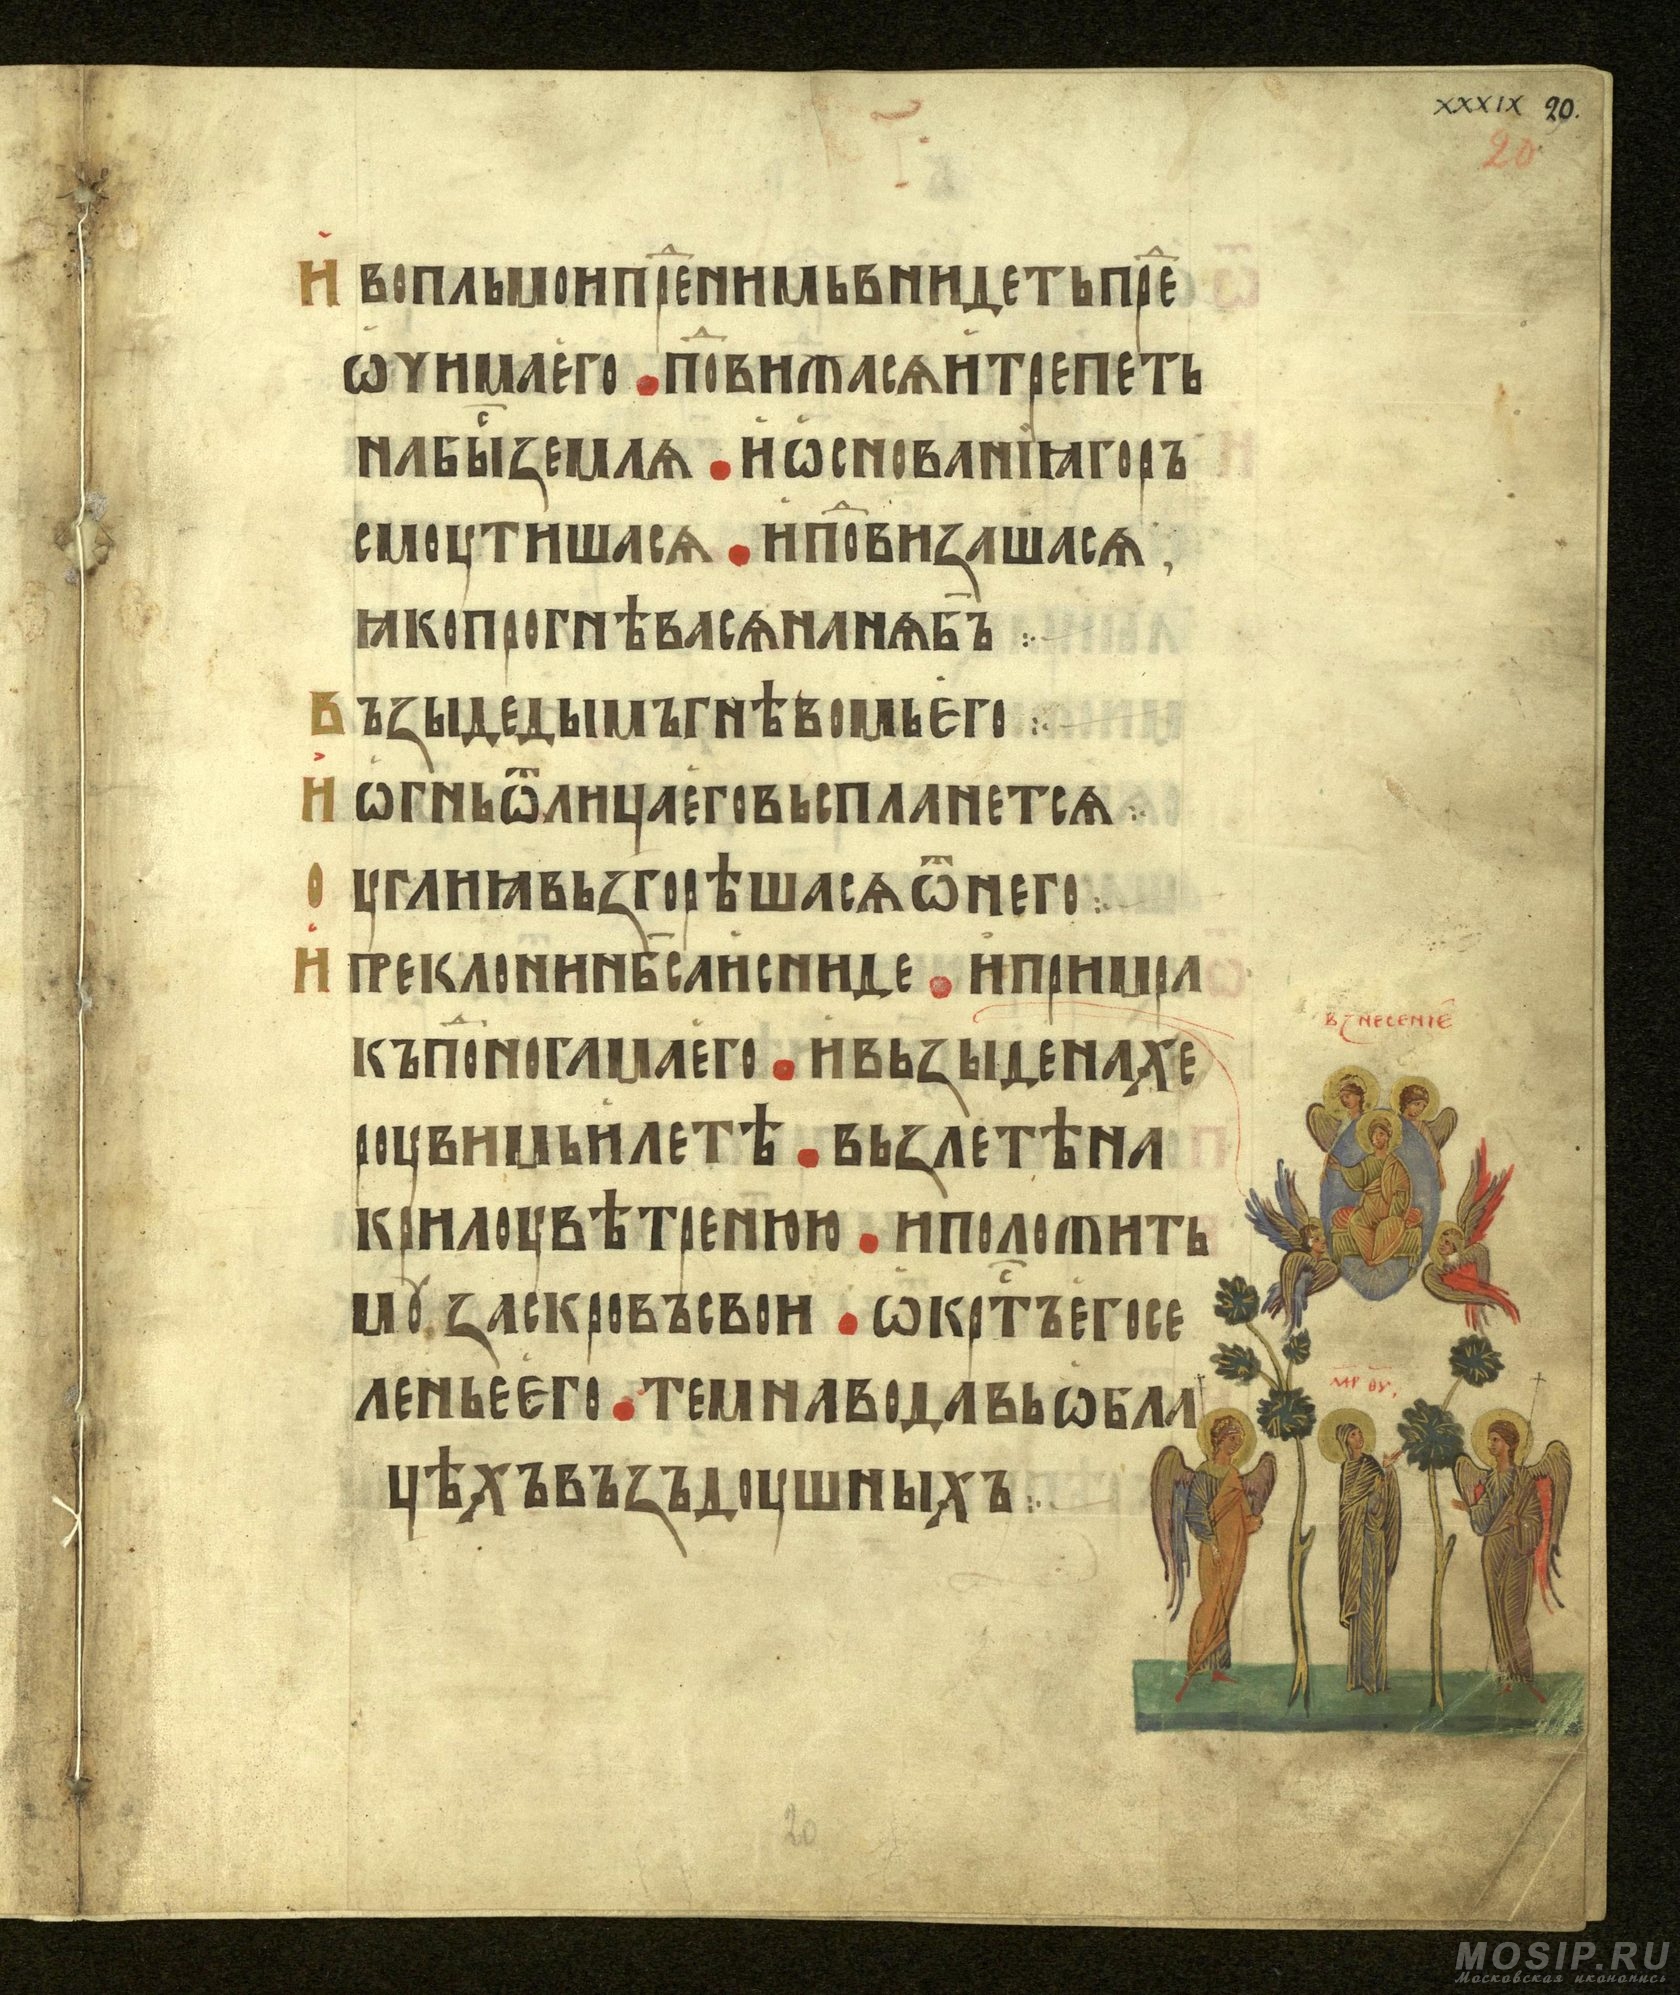 XXXIX 20.
20
И вопльмои прⷣенимь внидеть прⷣе
ѡчима его • поⷣвижасѧ и трепеть
на быⷭ҇ землѧ • и ѡснованіꙗ горъ
смоутишасѧ • и поⷣвизашасѧ,
ꙗко прогнѣвасѧ на нѧ б҃ъ :
Възыде дымъ гнѣвомь его :
И ѡгнь ѿ лица его въспланетсѧ :
Оуглиꙗ възгорѣшасѧ ѿ него :
И преклони нб҃са и сниде • и примра
къ поⷣ ногама его • и възыде на хе
роувимь и летѣ • възлетѣ на
крилоу вѣтреню • и положить
мꙋ за скровъ свои • ѡкрⷭ҇тъ его се
ленье его • темна вода въ ѡбла
цѣхъ въздоушныхъ :
взнесениⷷ
м҃р ѳу҃
20
MOSIP.RU
Московская иконопись